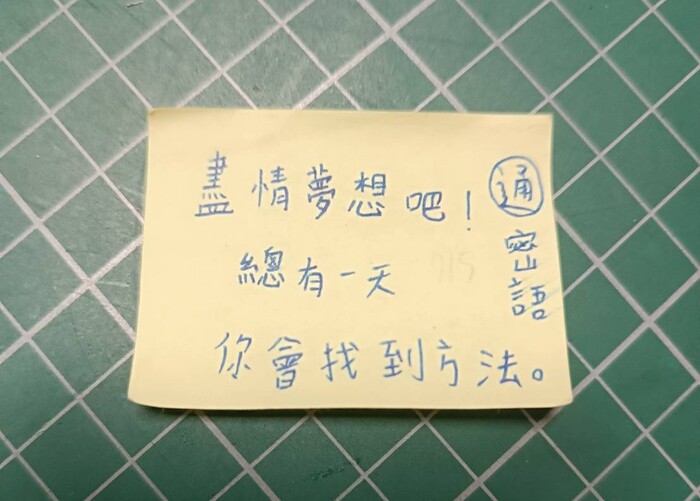 盡情夢想吧！
總有一天
你會找到方法。
通
密語